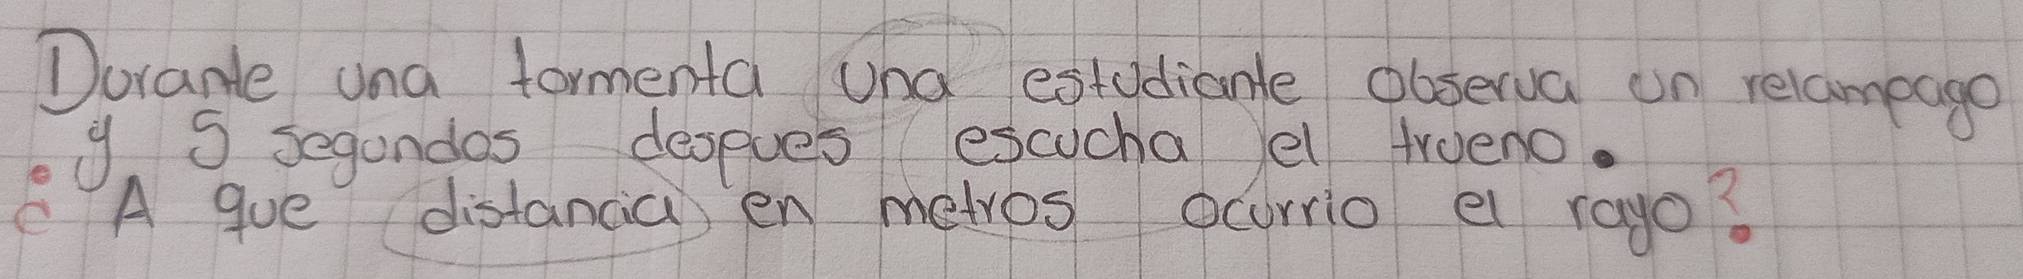 Durante una tormenta una estudiante observa un relampago
y 5 segundos despues escucha el trueno.
¿A que distancia en metros ocurrio el rayo?